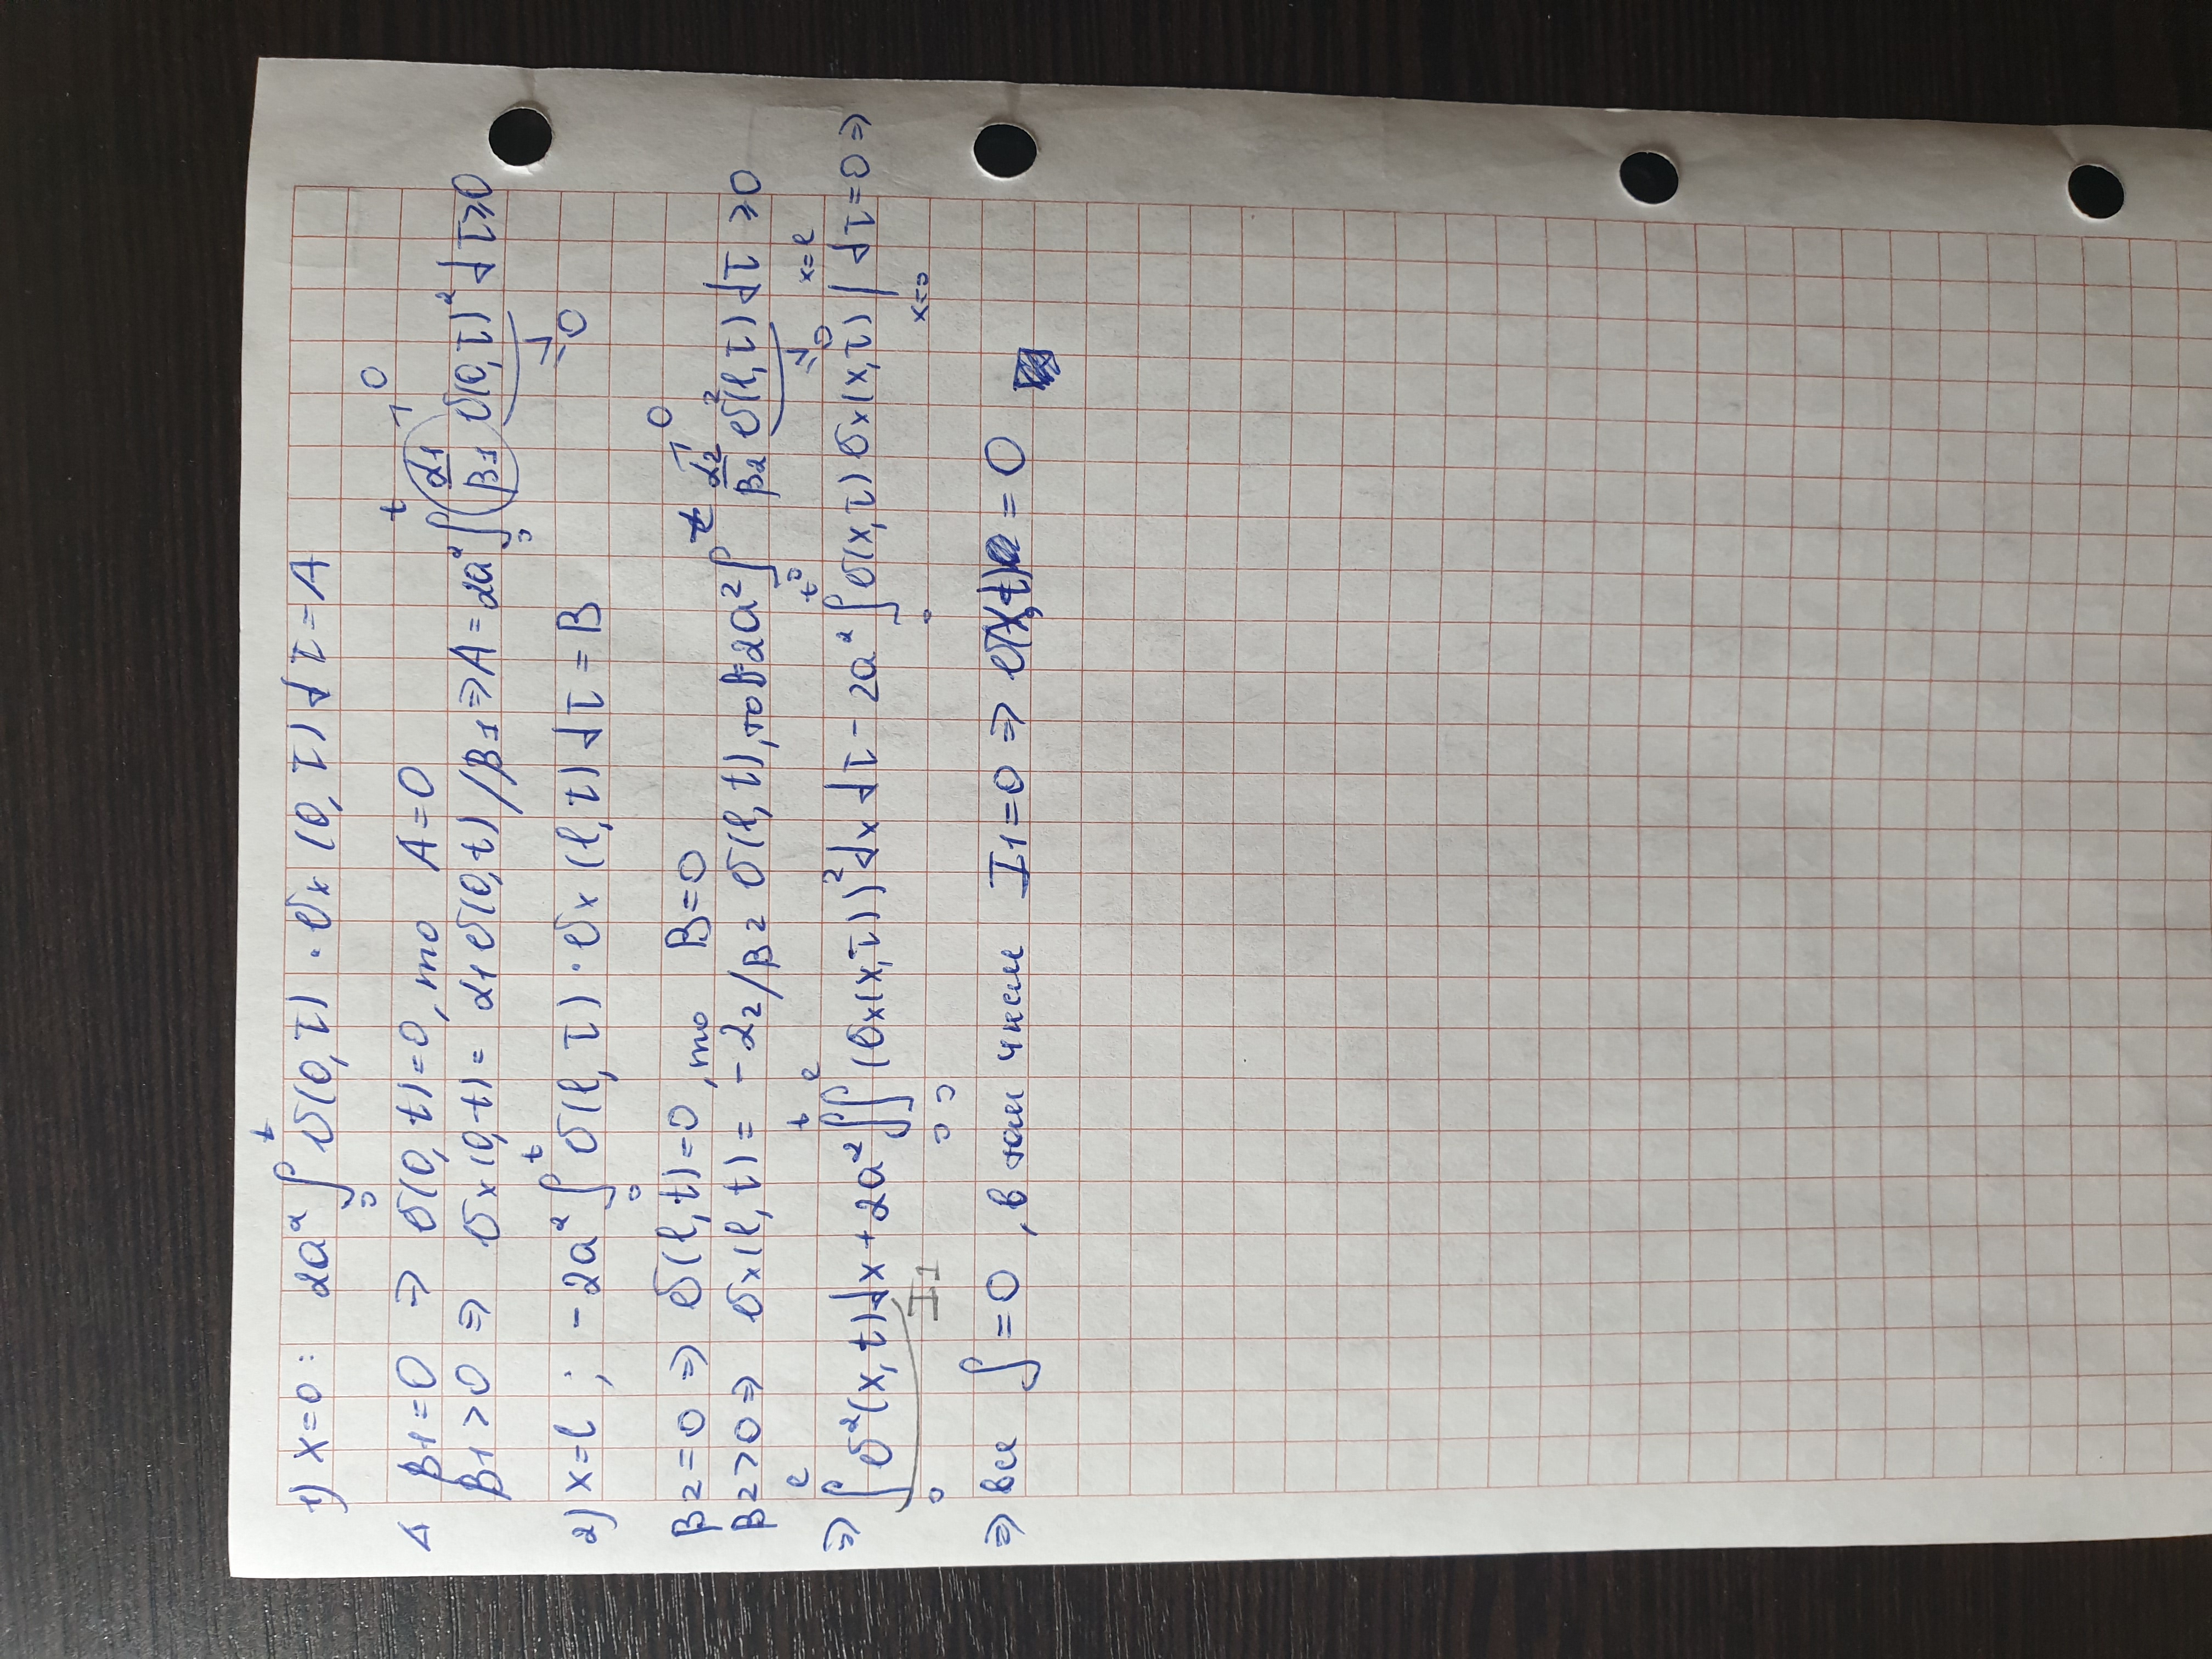 1) x=0: 2a² ∫₀ᵗ v(0,τ)·vₓ(0,τ)dτ = A
Δ β₁=0 ⇒ v(0,t)=0, то A=0
β₁>0 ⇒ vₓ(0,t)= α₁v(0,t)/β₁ ⇒ A = 2a² ∫₀ᵗ (α₁/β₁) v(0,τ)² dτ ≥0
≥0
2) x=l; -2a² ∫₀ᵗ v(l,τ)·vₓ(l,t)dτ = B
β₂=0 ⇒ v(l,t)=0, то B=0
β₂>0 ⇒ vₓ(l,t)= -α₂/β₂ v(l,t), то B=2a² ∫₀ᵗ α₂/β₂ v²(l,τ)dτ ≥0
≥0
⇒ ∫₀ˡ v²(x,t)dx + 2a² ∫₀ᵗ∫₀ˡ (vₓ(x,τ))²dxdτ - 2a² ∫₀ᵗ v(x,τ)vₓ(x,τ)|ₓ₌₀ˣ⁼ˡ dτ=0 ⇒
I₁
⇒ все ∫=0, в том числе I₁=0 ⇒ v(x,t) = 0